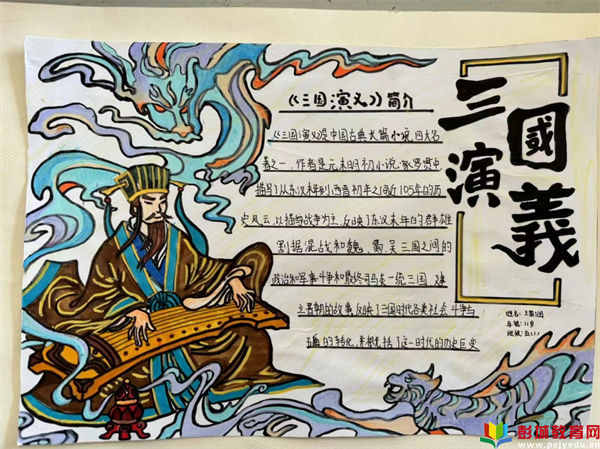 《三国演义》简介
《三国演义》是中国古典长篇小说四大名
著之一，作者是元末明初小说家罗贯中
描写了从东汉末年到西晋初年之间近105年的历
史风云，以描写战争为主，反映了东汉末年的群雄
割据混战和魏、蜀、吴三国之间的
政治和军事斗争和最终司马炎一统三国，建
立晋朝的故事，反映了三国时代各类社会斗争与
的转化，并概括了这一时代的历史巨变
三國
演義
姓名：
年龄：11岁
班级：五(1)
彭城教育网
www.pcjyedu.cn